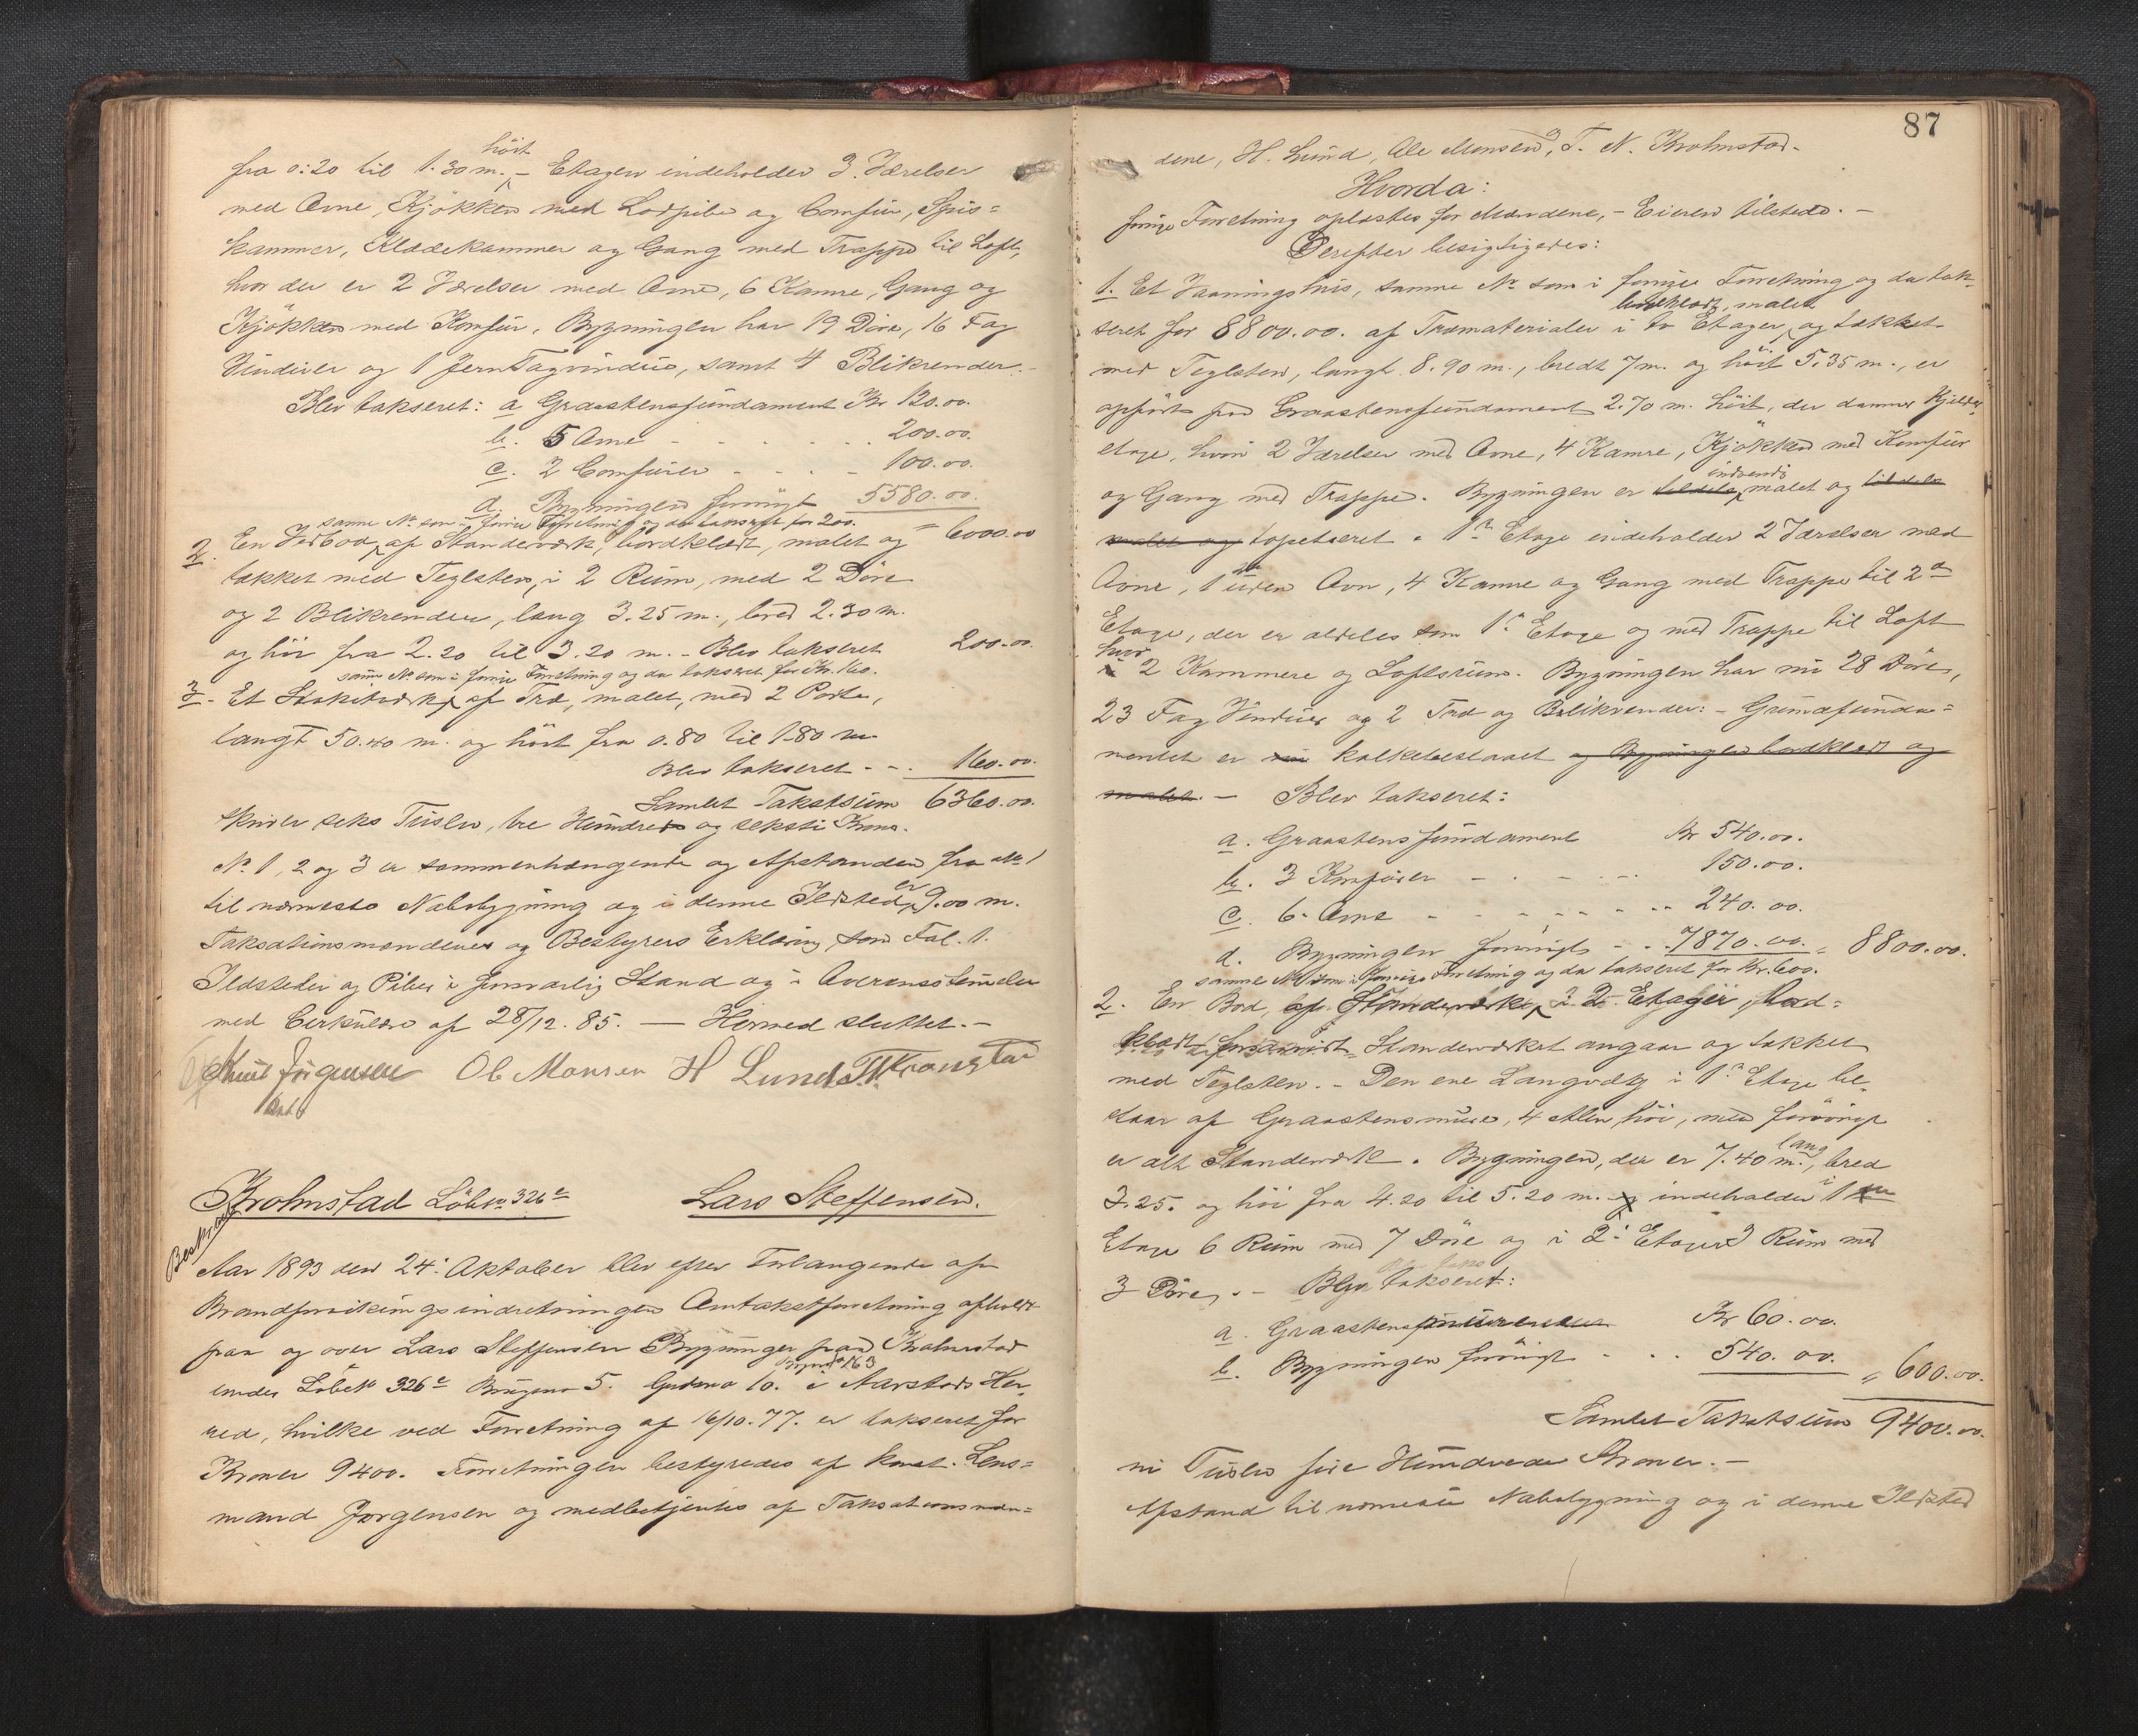 høit
fra 0.20 til 1.30 m. - Etagen indeholder 3 Værelser
med Ovne, Kjøkken med Lodpibe og Comfur, Spis=
kammer, Klædekammer og Gang med Trappe til Loft,
hvor der er 2 Værelser med Ovne, 6 Kamre, Gang og
Kjøkken med Komfur. Bygningen har 19 Døre, 16 Fag
Vinduer og 1 Jern Tagvindue, samt 4 Blikrender. -
Blev takseret: a Graastensfundament Kr 120.00.
b. 5 Ovne - - - - - 200.00.
c. 2 Comfurer - - - - 100.00.
d. Bygningen forøvrigt 5580.00.
= 6000.00
samme No som i forrige Forretning og da takseret for 200.
2. En Vedbod, af Standerværk, bordklædt, malet og
tækket med Teglsten, i 2 Rum, med 2 Døre
og 2 Blikrender, lang 3.25 m., bred 2.30 m.
og høi fra 2.20 til 3.20 m. - Blev takseret 200.00.
samme No som i forrige Forretning og da takseret for Kr. 160.
3. Et Stakitværk, af Træ, malet, med 2 Porte,
langt 50.40 m. og høit fra 0.80 til 1.80 m.
Blev takseret - - . 160.00.
Samlet Takstsum 6360.00.
skriver seks Tusen, tre Hundrede og seksti Kroner.
No 1, 2 og 3 er sammenhængende og Afstanden fra No 1
til nærmeste Nabobygning og i denne Ildsted er 9.00 m.
Taksationsmændenes og Bestyrers Erklæring som Fol. 1.
Ildsteder og Piber i forsvarlig Stand og i Overensstemmelse
med Cirkulære af 28/12. 85. — Hermed sluttet. -
Jörgensen Ole Monsen H Lund T N Kronstad
Krohnstad Löbeno 326e Lars Steffensen.
Beskrevet
Aar 1893 den 24. Oktober blev efter Forlangende af
Brandforsikringsindretningen Omtakstforretning afholdt
paa og over Lars Steffensen Bygninger paa Krohnstad
under Löbeno 326e Brugsno 5. Gardsno 10. Bygnno 163 i Aarstads Her=
red, hvilke ved Forretning af 16/10. 77. er takseret for
Kroner 9400. Forretningen bestyredes af konst. Lens=
mand Jørgensen og medbetjentes af Taksationsmæn=
87
dene, H. Lund, Ole Monsen, T. N. Krohnstad.
Hvorda:
forrige Forretning oplæstes for Mændene, - Eieren tilstede. -
Derefter besigtigedes:
1. Et Vaaningshus, samme No som i forrige Forretning og da tak=
bordklædt, malet
seret for 8800.00. af Træmaterialer i to Etager, og tækket
med Teglsten, langt 8.90 m., bredt 7 m. og høit 5.35 m., er
opført paa Graastensfundament 2.70 m. høit, der danner Kjelder
etage, hvori 2 Værelser med Ovne, 4 Kamre, Kjøkken med Komfur
indvendig
og Gang med Trappe. Bygningen er tildels malet og tildels
malet og tapetseret. 1te Etage indeholder 2 Værelser med
Ovne, 1 uden Ovn, 4 Kamre og Gang med Trappe til 2den
Etage, der er aldeles som 1te Etage og med Trappe til Loft
hvor
i 2 Kammere og Loftsrum. Bygningen har nu 28 Døre,
23 Fag Vinduer og 2 Træ og Blikrender: - Grundfunda=
mentet er nu kalkbeslaaet og Bygningen bordklædt og
malet. - Blev takseret:
a. Graastensfundament Kr 540.00.
b. 3 Komfurer - - - - 150.00.
c. 6 Ovne - - - - - - 240.00.
d. Bygningen forøvrigt - - 7870.00. = 8800.00.
samme No som i forrige Forretning og da takseret for Kr. 600.
2. En Bod, af Standerværk, i 2 Etager, bord=
klædt forsaavidt Standerværket angaar og tækket
med Teglsten. - Den ene Langvæg i 1te Etage be=
staar af Graastensmur, 4 Alen høi, men forøvrigt
lang
er alt Standerværk. Bygningen, der er 7.40 m., bred
3.25. og høi fra 4.20 til 5.20 m. og indeholder i 1te
Etage 6 Rum med 7 Døre og i 2. Etage 3 Rum med
3 Døre. - Blev takseret:
a. Graastensmuren Kr 60.00.
b. Bygningen forøvrigt - . . 540.00. " 600.00.
Samlet Takstsum 9400.00.
ni Tusen fire Hundrede Kroner. -
Afstand til nærmeste Nabobygning og i denne Ildsted